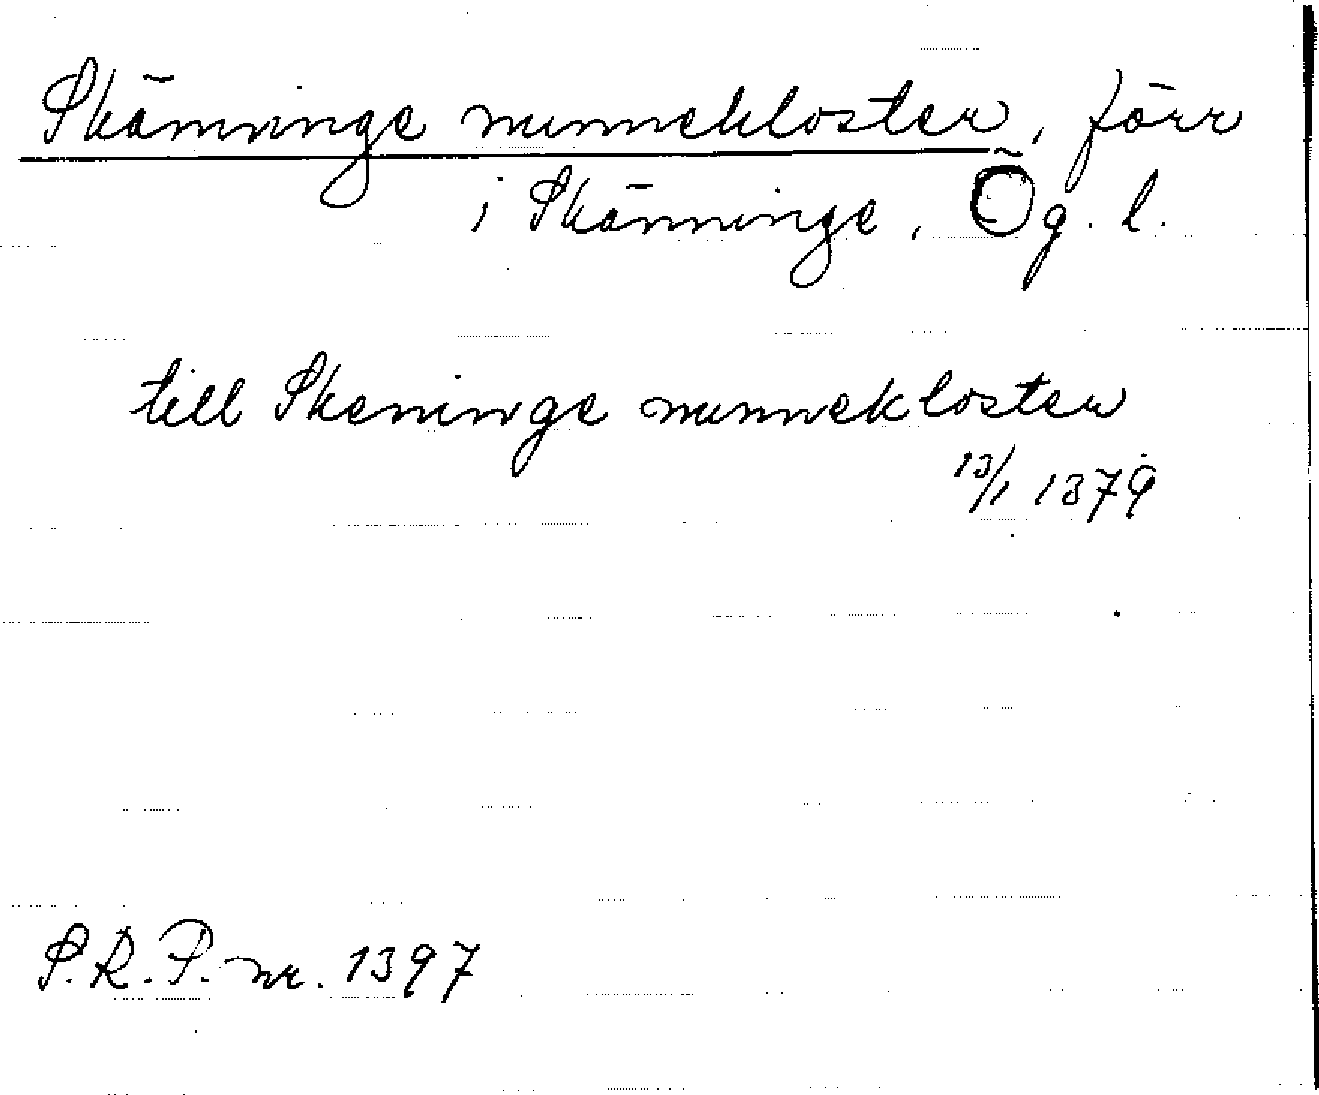 Skänninge nunnekloster, förr
i Skänninge, Ög. l.
till Skeninge nunnekloster
13/1 1379
S.R.P. nr. 1397